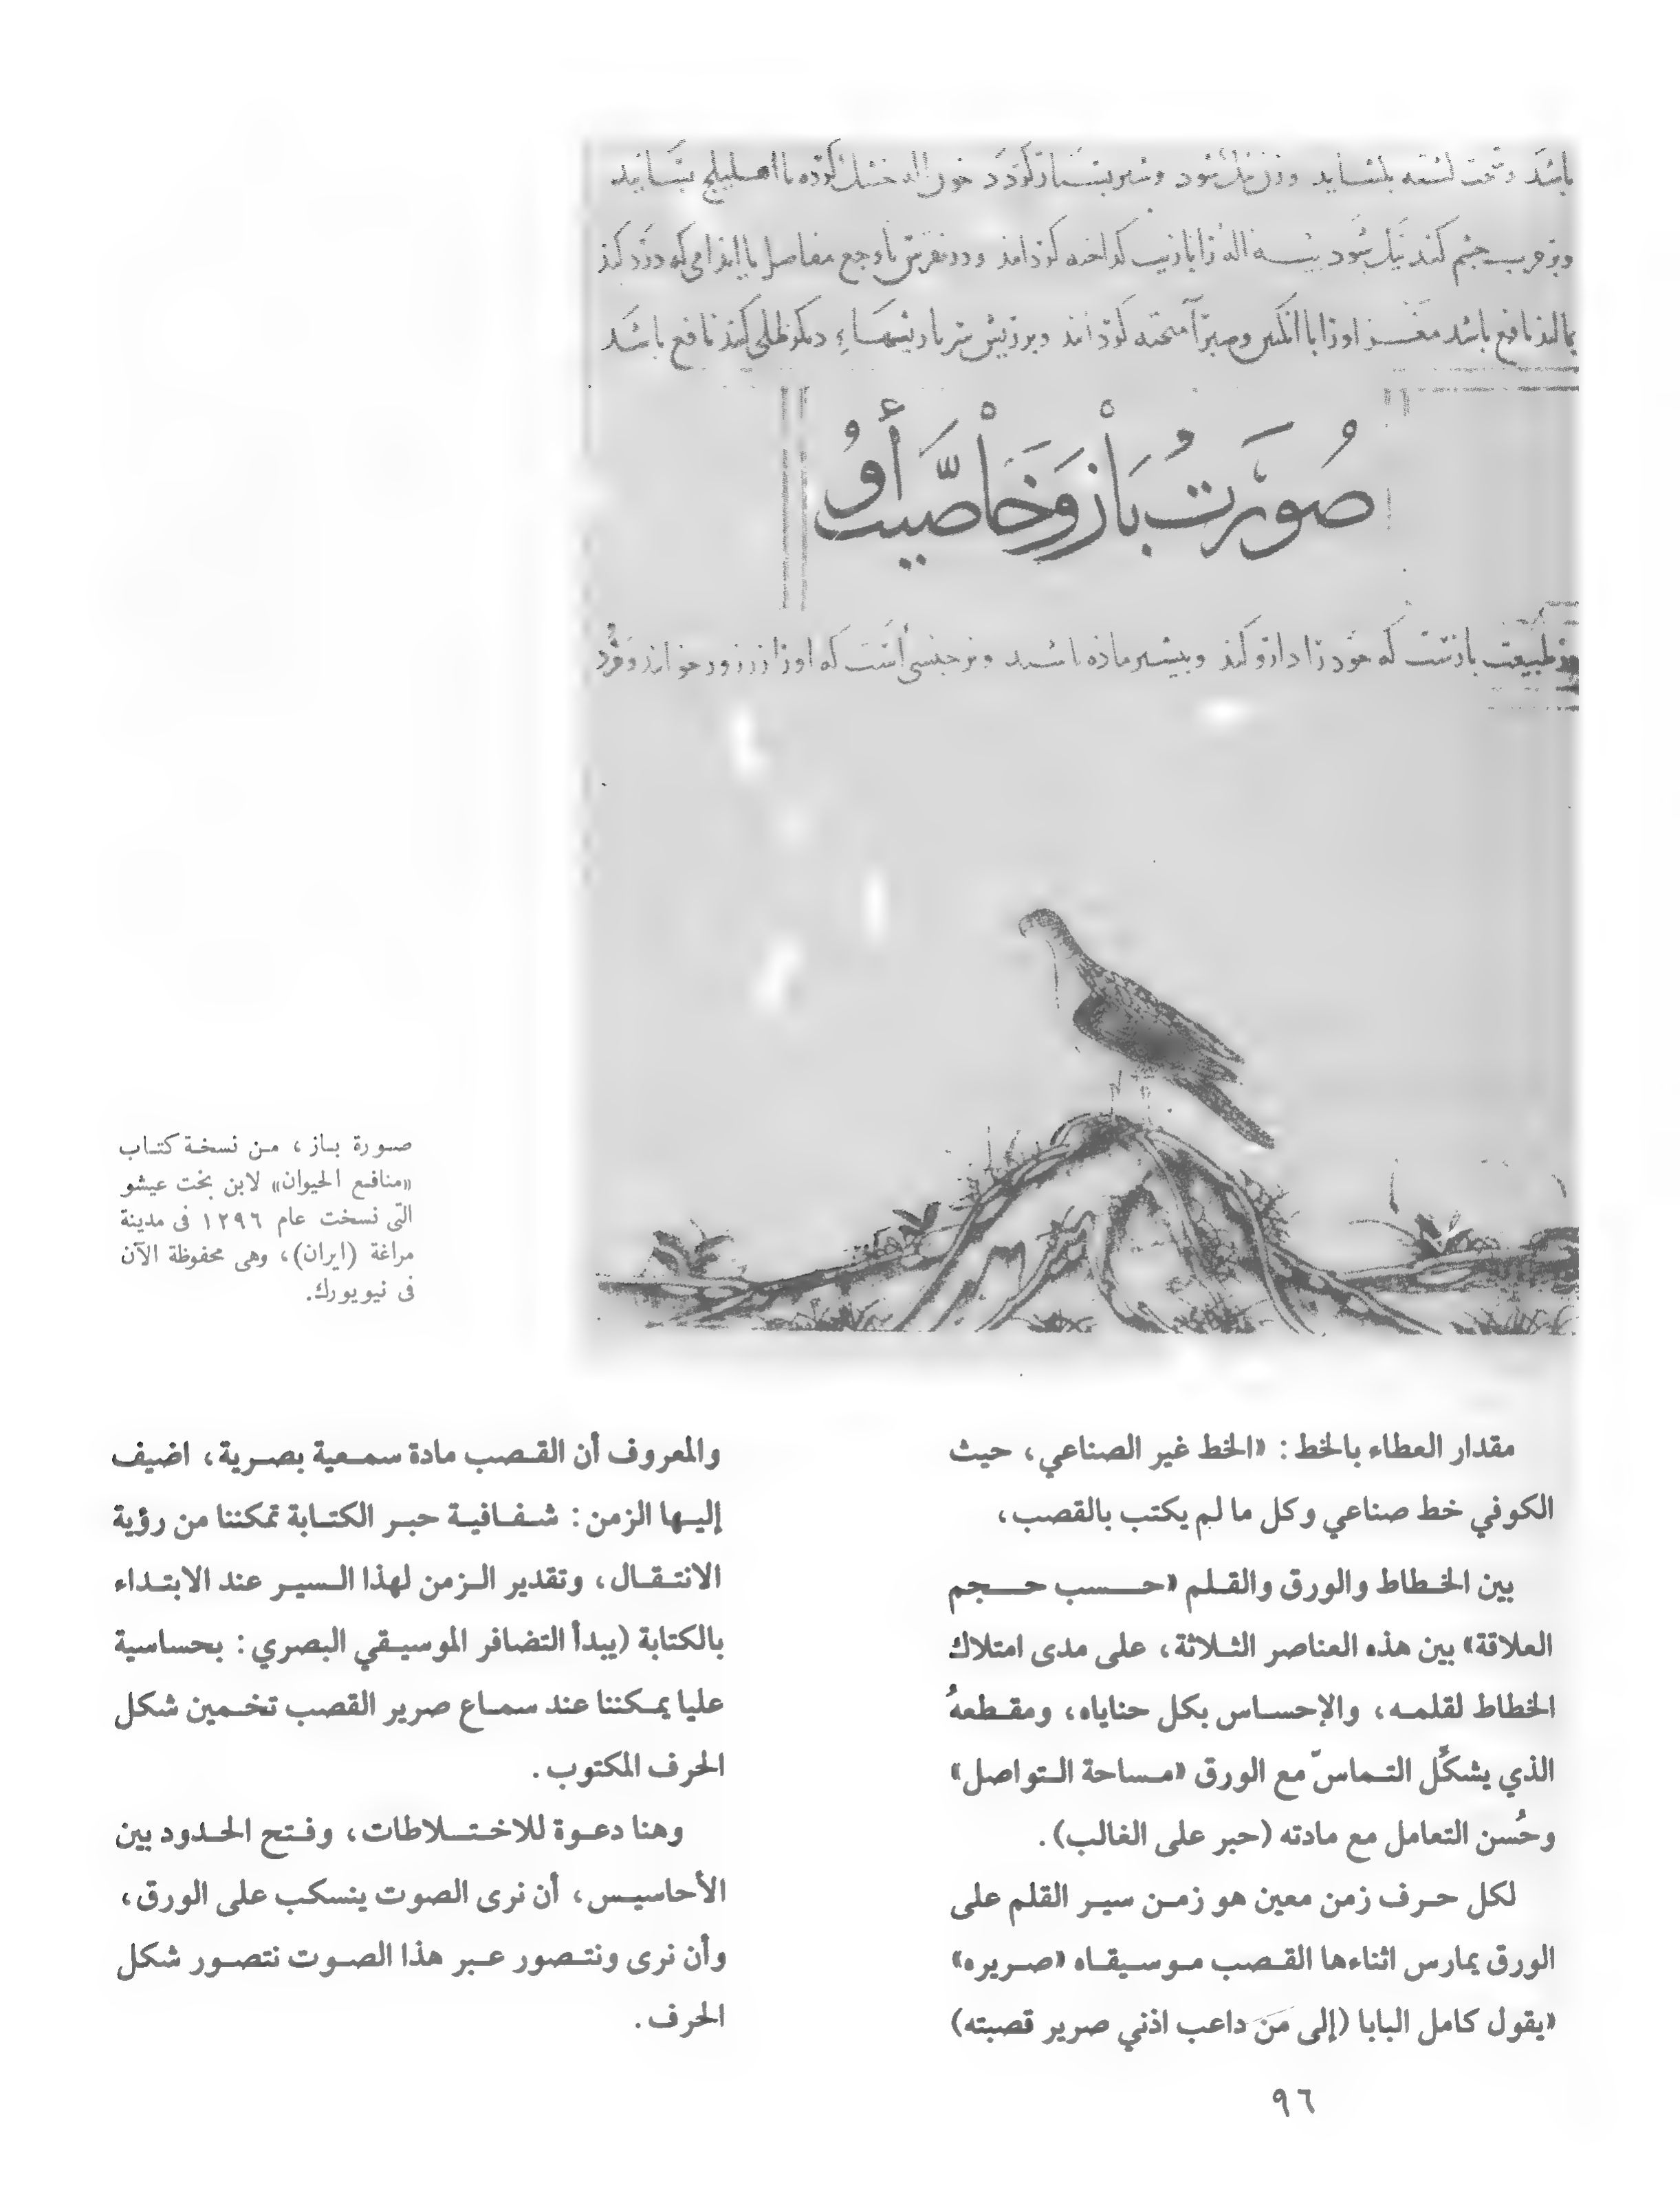 صُورَتُ بَاز وَخَاصِّيَت أو
صورة باز، من نسخة كتاب
«منافع الحيوان» لابن بخت عيشو
التى نسخت عام ١٢٩٦ فى مدينة
مراغة (ايران)، وهى محفوظة الآن
فى نيويورك.
مقدار العطاء بالخط: «الخط غير الصناعي، حيث
الكوفي خط صناعي وكل ما لم يكتب بالقصب،
بين الخطاط والورق والقلم «حسب حجم
العلاقة» بين هذه العناصر الثلاثة، على مدى امتلاك
الخطاط لقلمه، والإحساس بكل حناياه، ومقطعهُ
الذي يشكِّل التماسّ مع الورق «مساحة التواصل»
وحُسن التعامل مع مادته (حبر على الغالب).
لكل حرف زمن معين هو زمن سير القلم على
الورق يمارس اثناءها القصب موسيقاه «صريره»
«يقول كامل البابا (إلى مَنَ داعب اذني صرير قصبته)
والمعروف أن القصب مادة سمعية بصرية، اضيف
إليها الزمن: شفافية حبر الكتابة تمكننا من رؤية
الانتقال، وتقدير الزمن لهذا السير عند الابتداء
بالكتابة (يبدأ التضافر الموسيقي البصري: بحساسية
عليا يمكننا عند سماع صرير القصب تخمين شكل
الحرف المكتوب.
وهنا دعوة للاختلاطات، وفتح الحدود بين
الأحاسيس، أن نرى الصوت ينسكب على الورق،
وأن نرى ونتصور عبر هذا الصوت نتصور شكل
الحرف.
٩٦